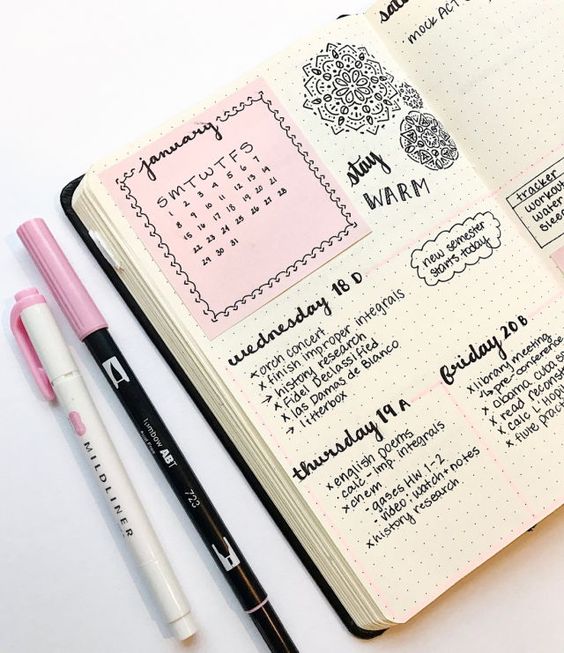 january
S M T W T F S
1 2 3 4 5 6 7
8 9 10 11 12 13 14
15 16 17 18 19 20 21
22 23 24 25 26 27 28
29 30 31
stay
WARM
new semester
starts today
wednesday 18 D
x orch concert
x finish improper integrals
→ history research
x Fidel Declassified
x las Damas de Blanco
→ litterbox
thursday 19 A
x english poems
calc imp. integrals
x chem
- gases HW 1-2
- video: watch + notes
x history research
mock ACT
tracker
workou
water
sleep
friday 20 B
x library meeting
↳ pre-conference
x obama cuba s
x read reconst
x calc L'Hopi
x five pa
MILDLINER
Tombow ABT
723